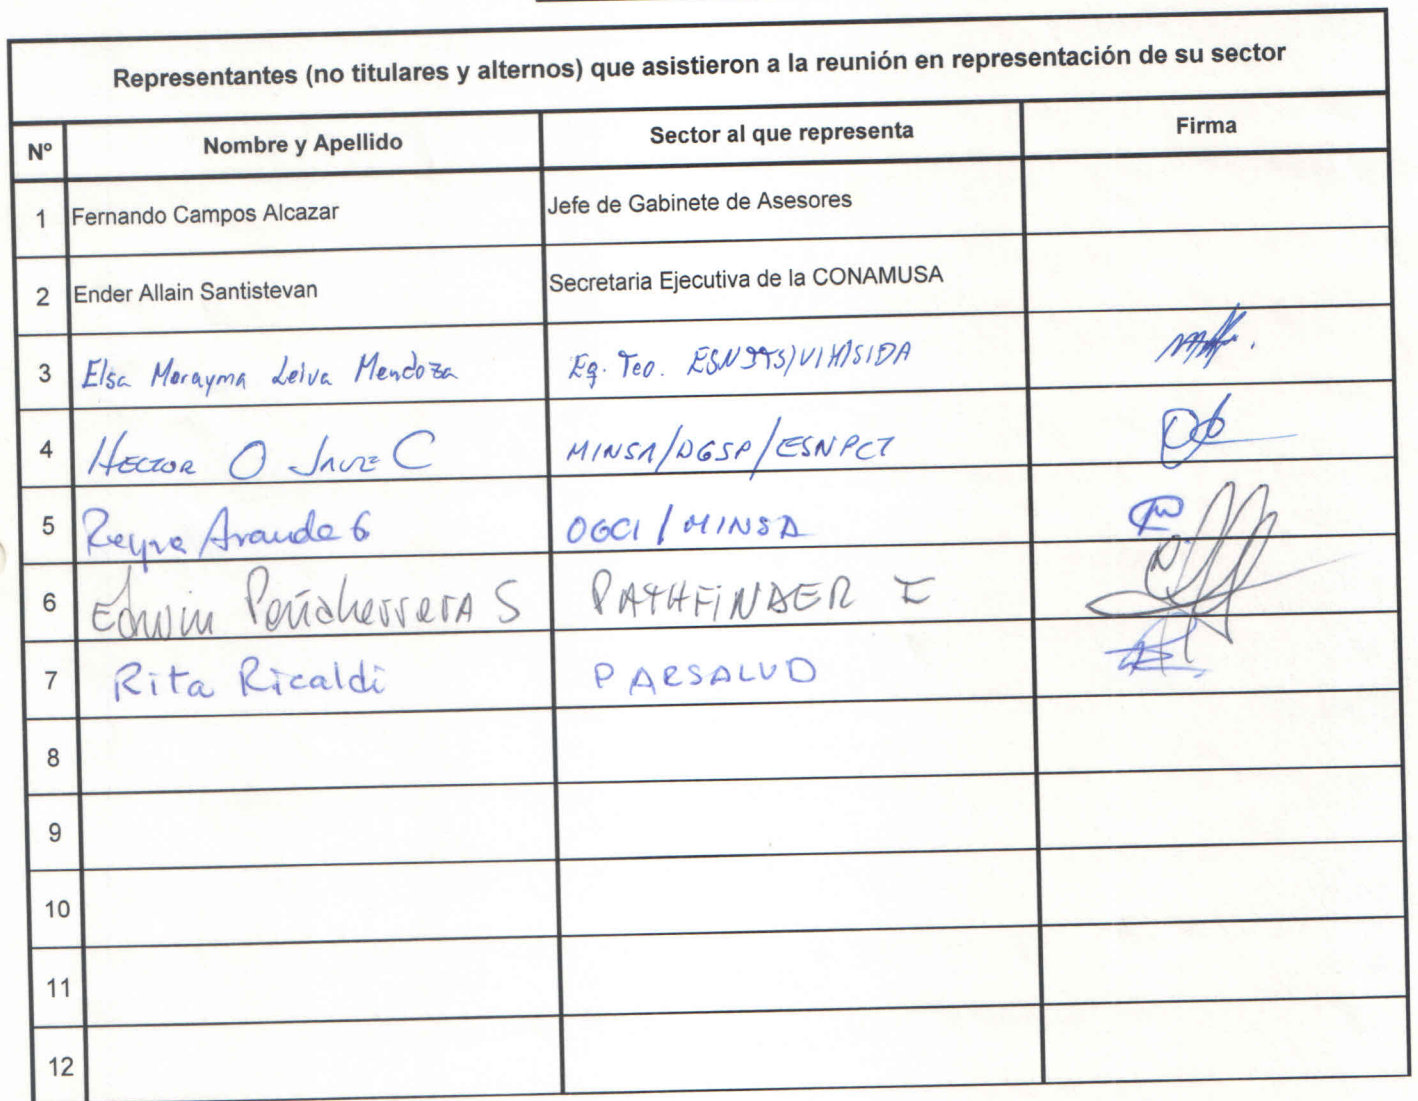 Representantes (no titulares y alternos) que asistieron a la reunión en representación de su sector
Nº Nombre y Apellido Sector al que representa Firma
1 Fernando Campos Alcazar Jefe de Gabinete de Asesores
2 Ender Allain Santistevan Secretaria Ejecutiva de la CONAMUSA
3 Elsa Morayma Leiva Mendoza Eq. Teo. ESNITS/VIH/SIDA
4 Hector O Jave C MINSA/DGSP/ESNPCT
5 Reyna Aranda G OGCI / MINSA
6 Edwin Peñaherrera S PATHFINDER I
7 Rita Ricaldi PARSALUD
8
9
10
11
12